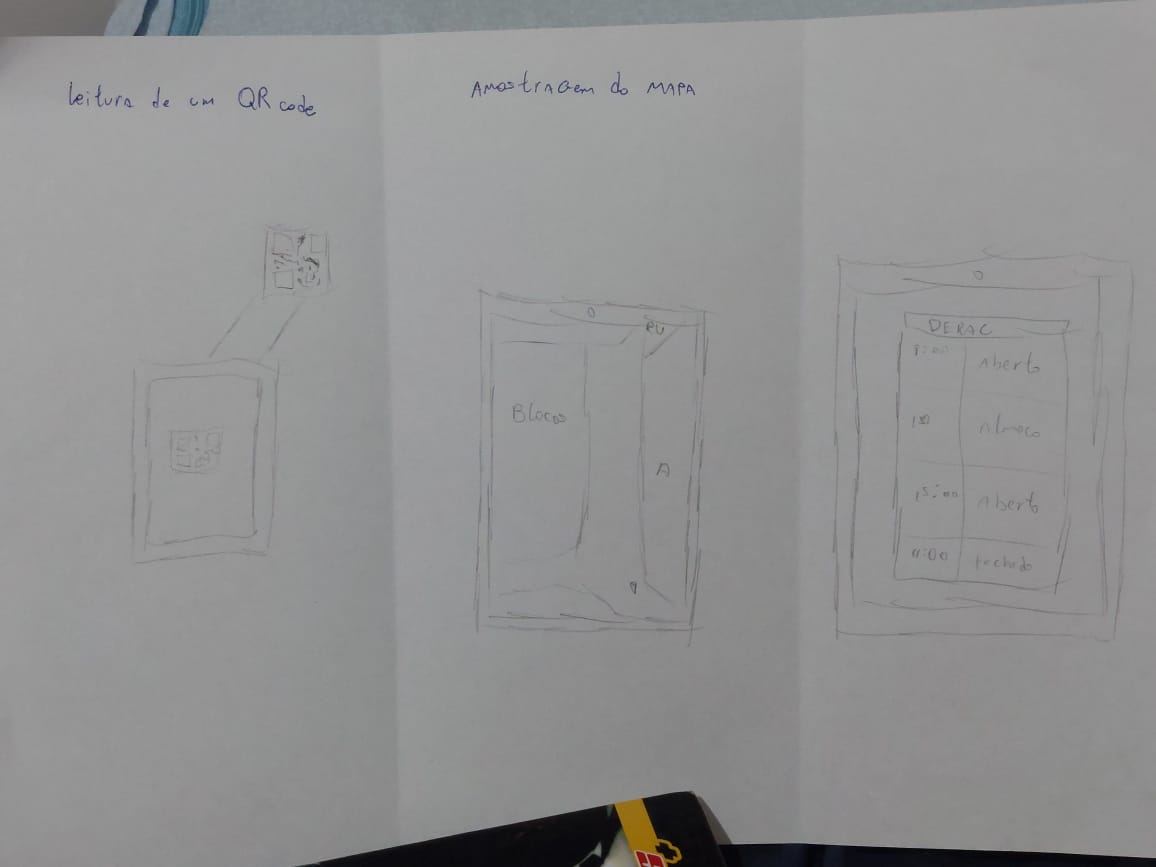 Leitura de um QR code
AMostrAGem do MAPA
RU
Blocos
A
DERAC
Aberto
Almoço
15:00 Aberto
fechado